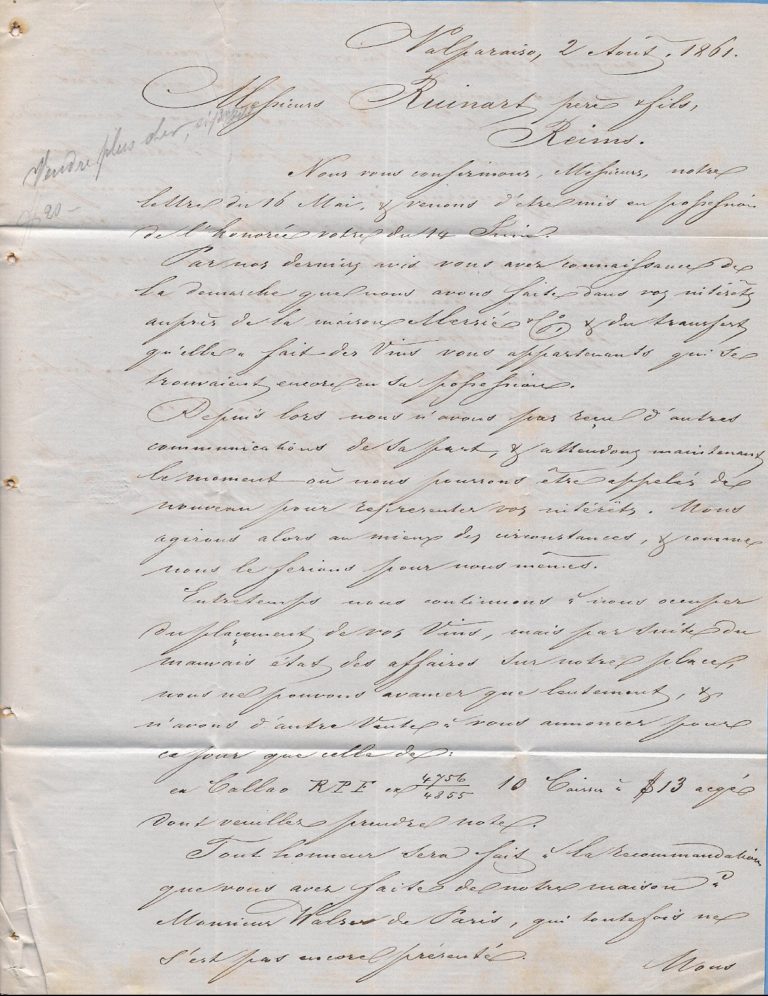 Valparaiso, 2 Août. 1861.
Messieurs Ruinart père & fils,
Reims.
Vendre plus cher,
$20 -
Nous vous confirmons, Messieurs, notre
lettre du 16 Mai, & venons d'être mis en possession
de l'honorée votre du 14 Juin.
Par nos derniers avis vous avez connaissance de
la demarche que nous avons faite dans vos intérêts
auprès de la maison & Co & du transfert
qu'elle a fait des Vins vous appartenants qui se
trouvaient encore en sa possession.
Depuis lors nous n'avons pas reçu d'autres
communications de sa part, & attendons maintenant
le moment où nous pourrons être appelés de
nouveau pour representer vos intérêts. Nous
agirons alors au mieux des circonstances, & comme
nous le ferions pour nous mêmes.
Entretemps nous continuons à nous occuper
du placement de vos Vins, mais par suite du
mauvais état des affaires sur notre place,
nous ne pouvons avancer que lentement, &
n'avons d'autre Vente à vous annoncer pour
ce jour que celle de:
ex Callao RPF ex 4756/4855 10 Caisses à $13 acqé
dont veuillez prendre note.
Tout honneur sera fait à la recommandation
que vous avez faite de notre maison à
Monsieur de Paris, qui toutefois ne
s'est pas encore présenté.
Nous